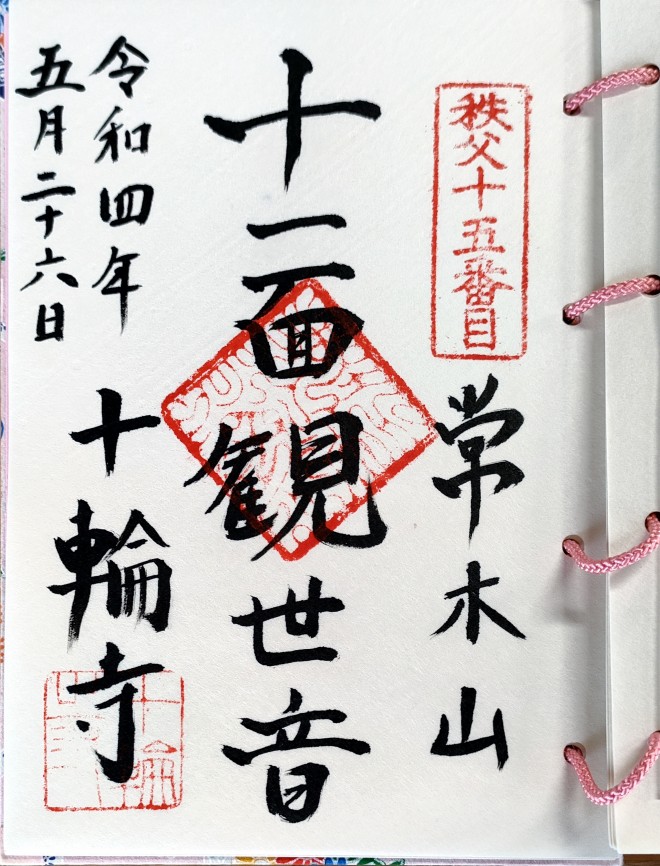 秩父十五番目
常木山
十一面観世音
令和四年
五月二十六日
十輪寺